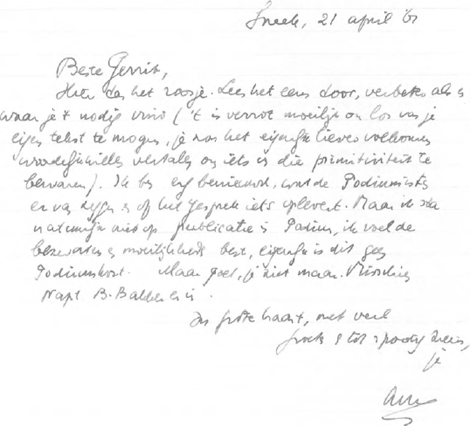 Sneek, 21 april '61
Beste Gerrit,
Hier dan het zaasje. Lees het eens door, verbeter als en
waar je 't nodig vind ('t is verrot moeilijk om los van je
eigen tekst te mogen, je zou het eigenlijk liever volkomen
woordgetrouw willen vertalen om iets van die primitiviteit te
bewaren). Ik ben erg benieuwd, wat de Podiumisten
er van zeggen en of het gesprek iets oplevert. Maar ik sta
natuurlijk niet op publicatie in Podium, ik voel de
bezwaren en moeilijkheden best, eigenlijk is dit geen
Podiumkost. Maar goed, je ziet maar. Misschien
hapt B. Bakker er in.
In grote haast, met veel
groeten en tot spoedig ziens,
je